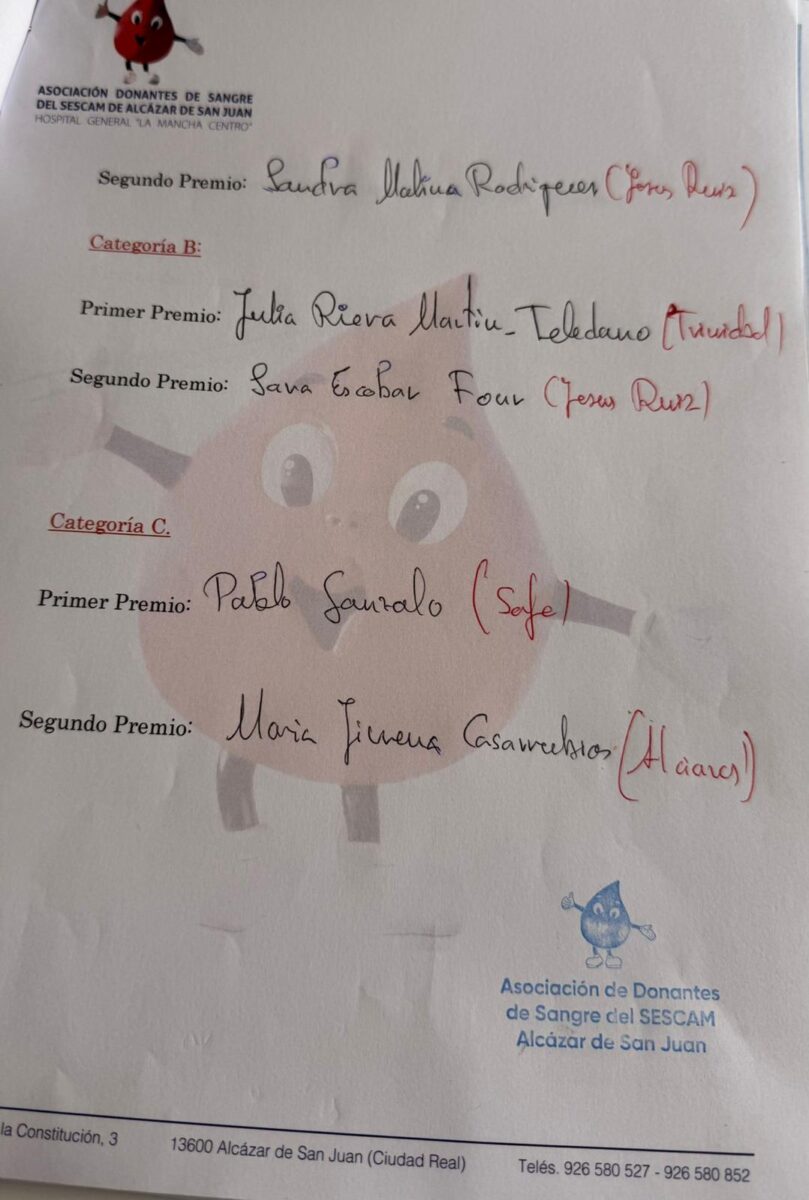 ASOCIACIÓN DONANTES DE SANGRE
DEL SESCAM DE ALCÁZAR DE SAN JUAN
HOSPITAL GENERAL "LA MANCHA CENTRO"
Segundo Premio: Sandra Molina Rodrigeces (Jesus Ruiz)
Categoría B:
Primer Premio: Julia Riera Martin-Toledano (Trinidad)
Segundo Premio: Sara Escobar Four (Jesus Ruiz)
Categoría C.
Primer Premio: Pablo Gonzalo (Safa)
Segundo Premio: Maria Jimena Casarrubios (Alciares)
Asociación de Donantes
de Sangre del SESCAM
Alcázar de San Juan
la Constitución, 3 13600 Alcázar de San Juan (Ciudad Real) Teléfs. 926 580 527 - 926 580 852